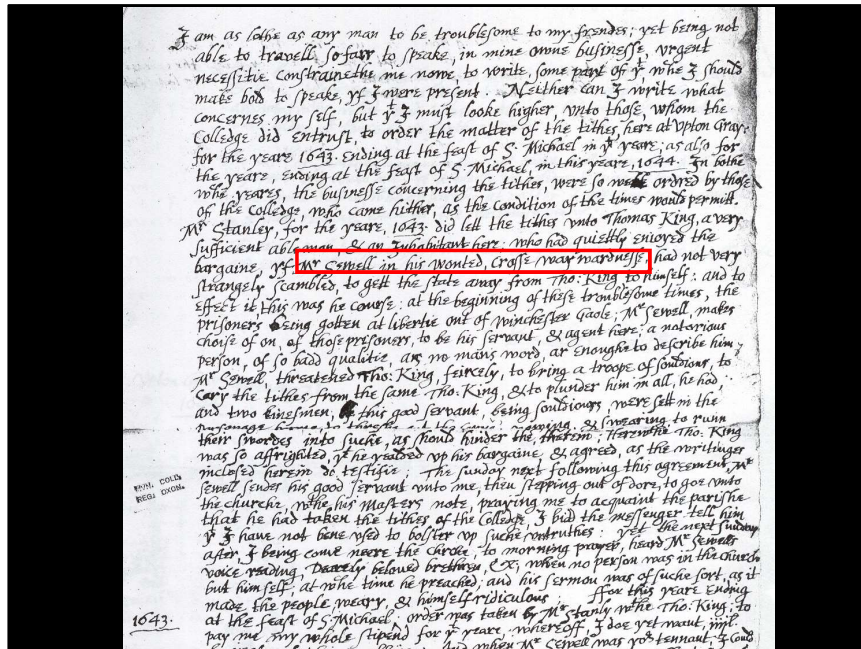 I am as lothe as any man to be troublesome to my frendes; yet being not
able to travell so farr to speake, in mine owne businesse, urgent
necessitie constrainethe me nowe, to write, some part of yt, whc I should
make bold to speake, yf I were present. Neither can I write what
concernes my self, but yt I must looke higher, unto those, whom the
Colledge did entrust, to order the matter of the tithes, here at Upton Gray:
for the yeare 1643. Ending at the feast of S. Michael in yt yeare; as also for
the yeare, ending at the feast of S. Michael, in this yeare, 1644. In bothe
whc yeares, the businesse concerning the tithes, were so well ordred by those
of the Colledge, who came hither, as the condition of the times would permitt.
Mr Stanley, for the yeare, 1643. did lett the tithes unto Thomas King, a very
sufficient able man, & an Inhabitant here; who had quietly enioyed the
bargaine, yf Mr Sewell in his wonted, Crosse waywardnesse, had not very
strangely scambled, to gett the state away from Tho: King to himself: and to
effect it this was he course: at the beginning of these troublesome times, the
prisoners being gotten at libertie out of Winchester Gaole; Mr Sewell, makes
choise of on, of those prisoners, to be his servant, & agent here; a notorious
person, of so badd qualitie, as no mans word, ar enough to describe him;
Mr Sewell, threatened Tho: King, feircely, to bring a troope of souldiors, to
Cary the tithes from the same Tho: King, & to plunder him in all, he had;
and two kinesmen, of this good servant, being souldiours, were sett in the
& swearing, to runn
their swordes into suche, as should hinder the, therein; Herewthe Tho: King
was so affrighted, yt he yealded up his bargaine, & agreed, as the writinge
inclosed herein do testifie; The sunday next following this agreement, Mr
Sewell sendes his good servant unto me, then stepping out of dore, to goe unto
the churche, wthe his Masters note, praying me to acquaint the parishe
that he had taken the tithes of the Colledge, I bid the messenger tell him
yt I have not bene used to bolster up suche untruthes: yet the next sunday
after, I being come neere the Chirche, to morning prayer, heard Mr Sewells
voice reading, Dearely beloved brethren, &c, when no person was in the Church
but himself; at whc time he preached; and his sermon was of suche sort, as it
made the people weary, & himself ridiculous; ffor this yeare Ending
at the feast of S. Michael; order was taken by Mr Stanly wthe Tho: King; to
1643.
pay me my whole stipend for yt yeare, whereoff, I doe yet want, iiijl.
And when Mr Sewell was yor tennaut, I Could
MUN. COLL.
REGI OXON.